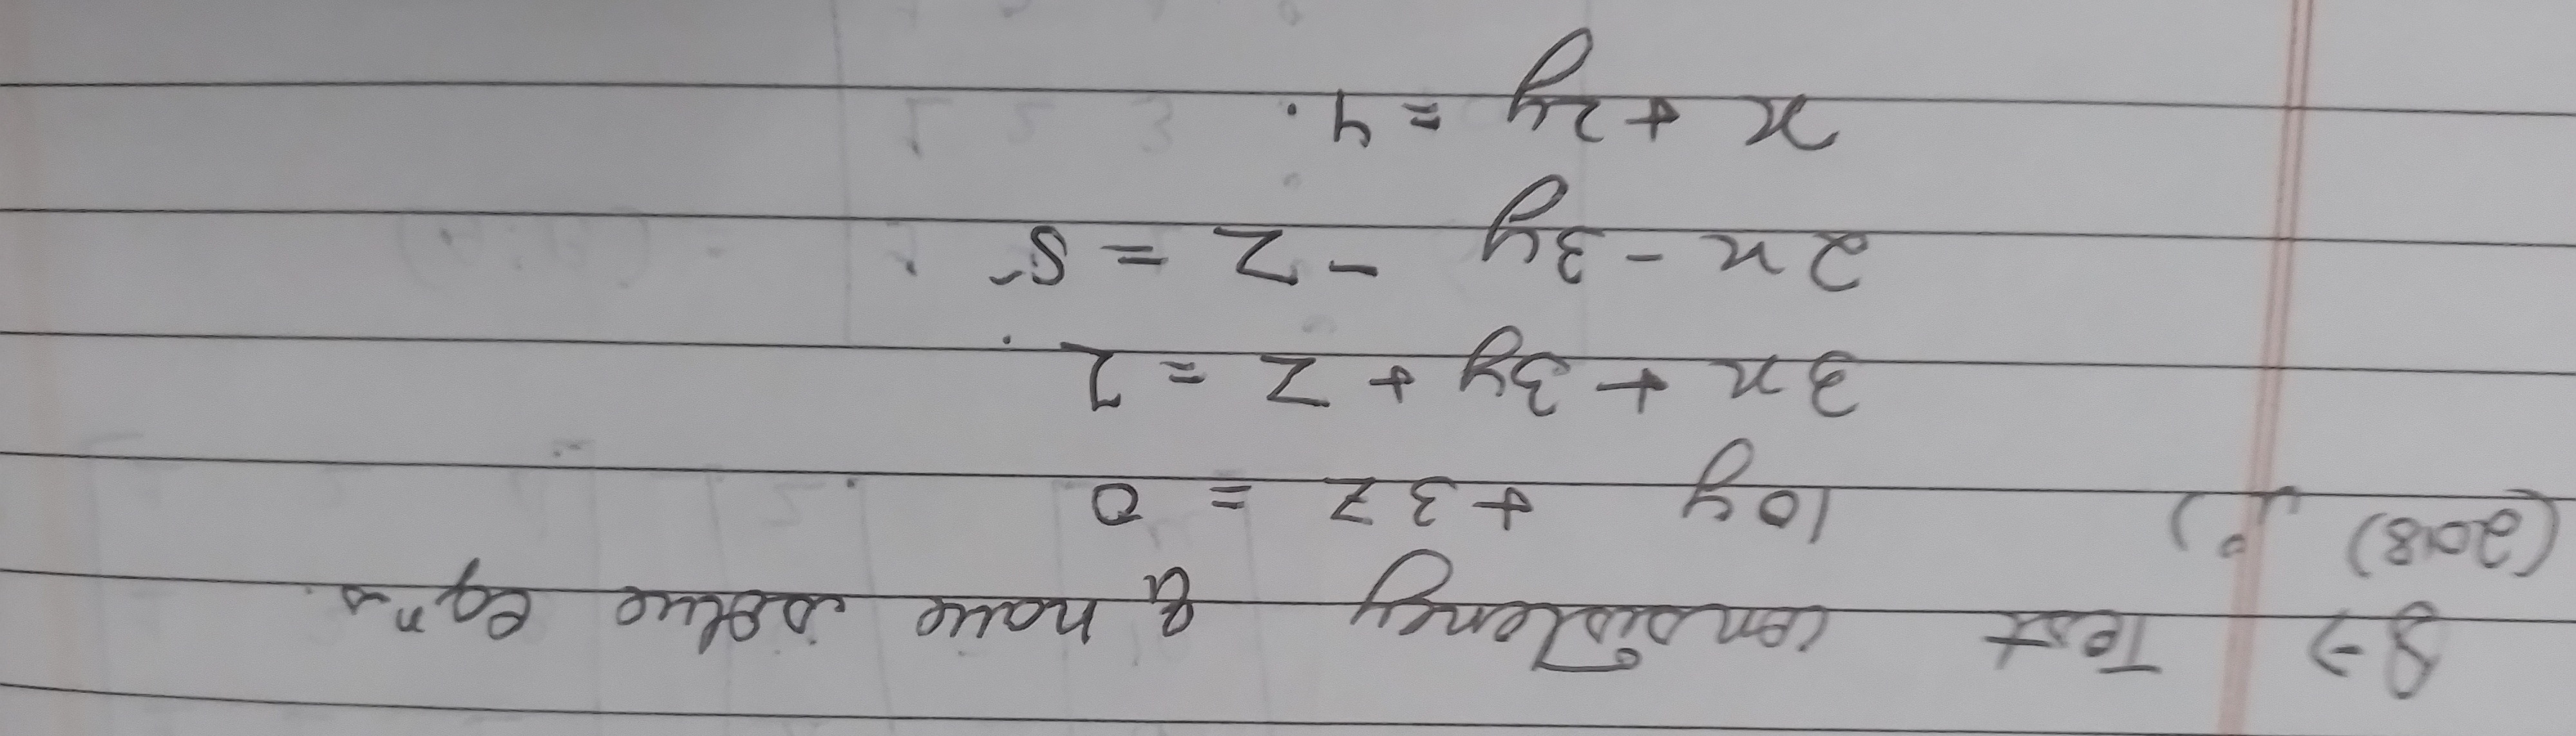 Q→ Test consistency & have solve eqⁿs.
(2018) 10y + 3z = 0
3x + 3y + z = 1.
2x - 3y - z = 5
x + 2y = 4.